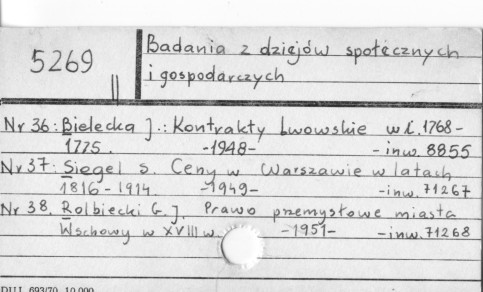 5269
Badania z dziejów społecznych
i gospodarczych
Nr 36: Bielecka J.: Kontrakty Lwowskie w l. 1768-
1775. -1948- - inw. 8855
Nr 37: Siegel S. Ceny w Warszawie w latach
1816-1914. -1949- -inw. 71267
Nr 38. Rolbiecki G. J. Prawo przemysłowe miasta
Wschowy w XVIII w. -1951- -inw. 71268
DUJ. 693/70 10.000